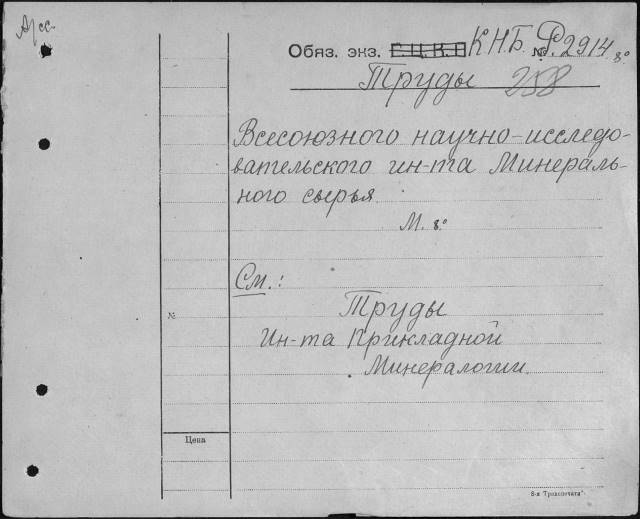 Обяз. экз. Г.Ц.К.П КНБ № Р.2914 8°
Труды 258
Всесоюзного научно-исследо-
вательского ин-та Минераль-
ного сырья
М. 8°
См.:
Труды
№
Ин-та Прикладной
Минералогии.
Цена
8-я "Транспечати".